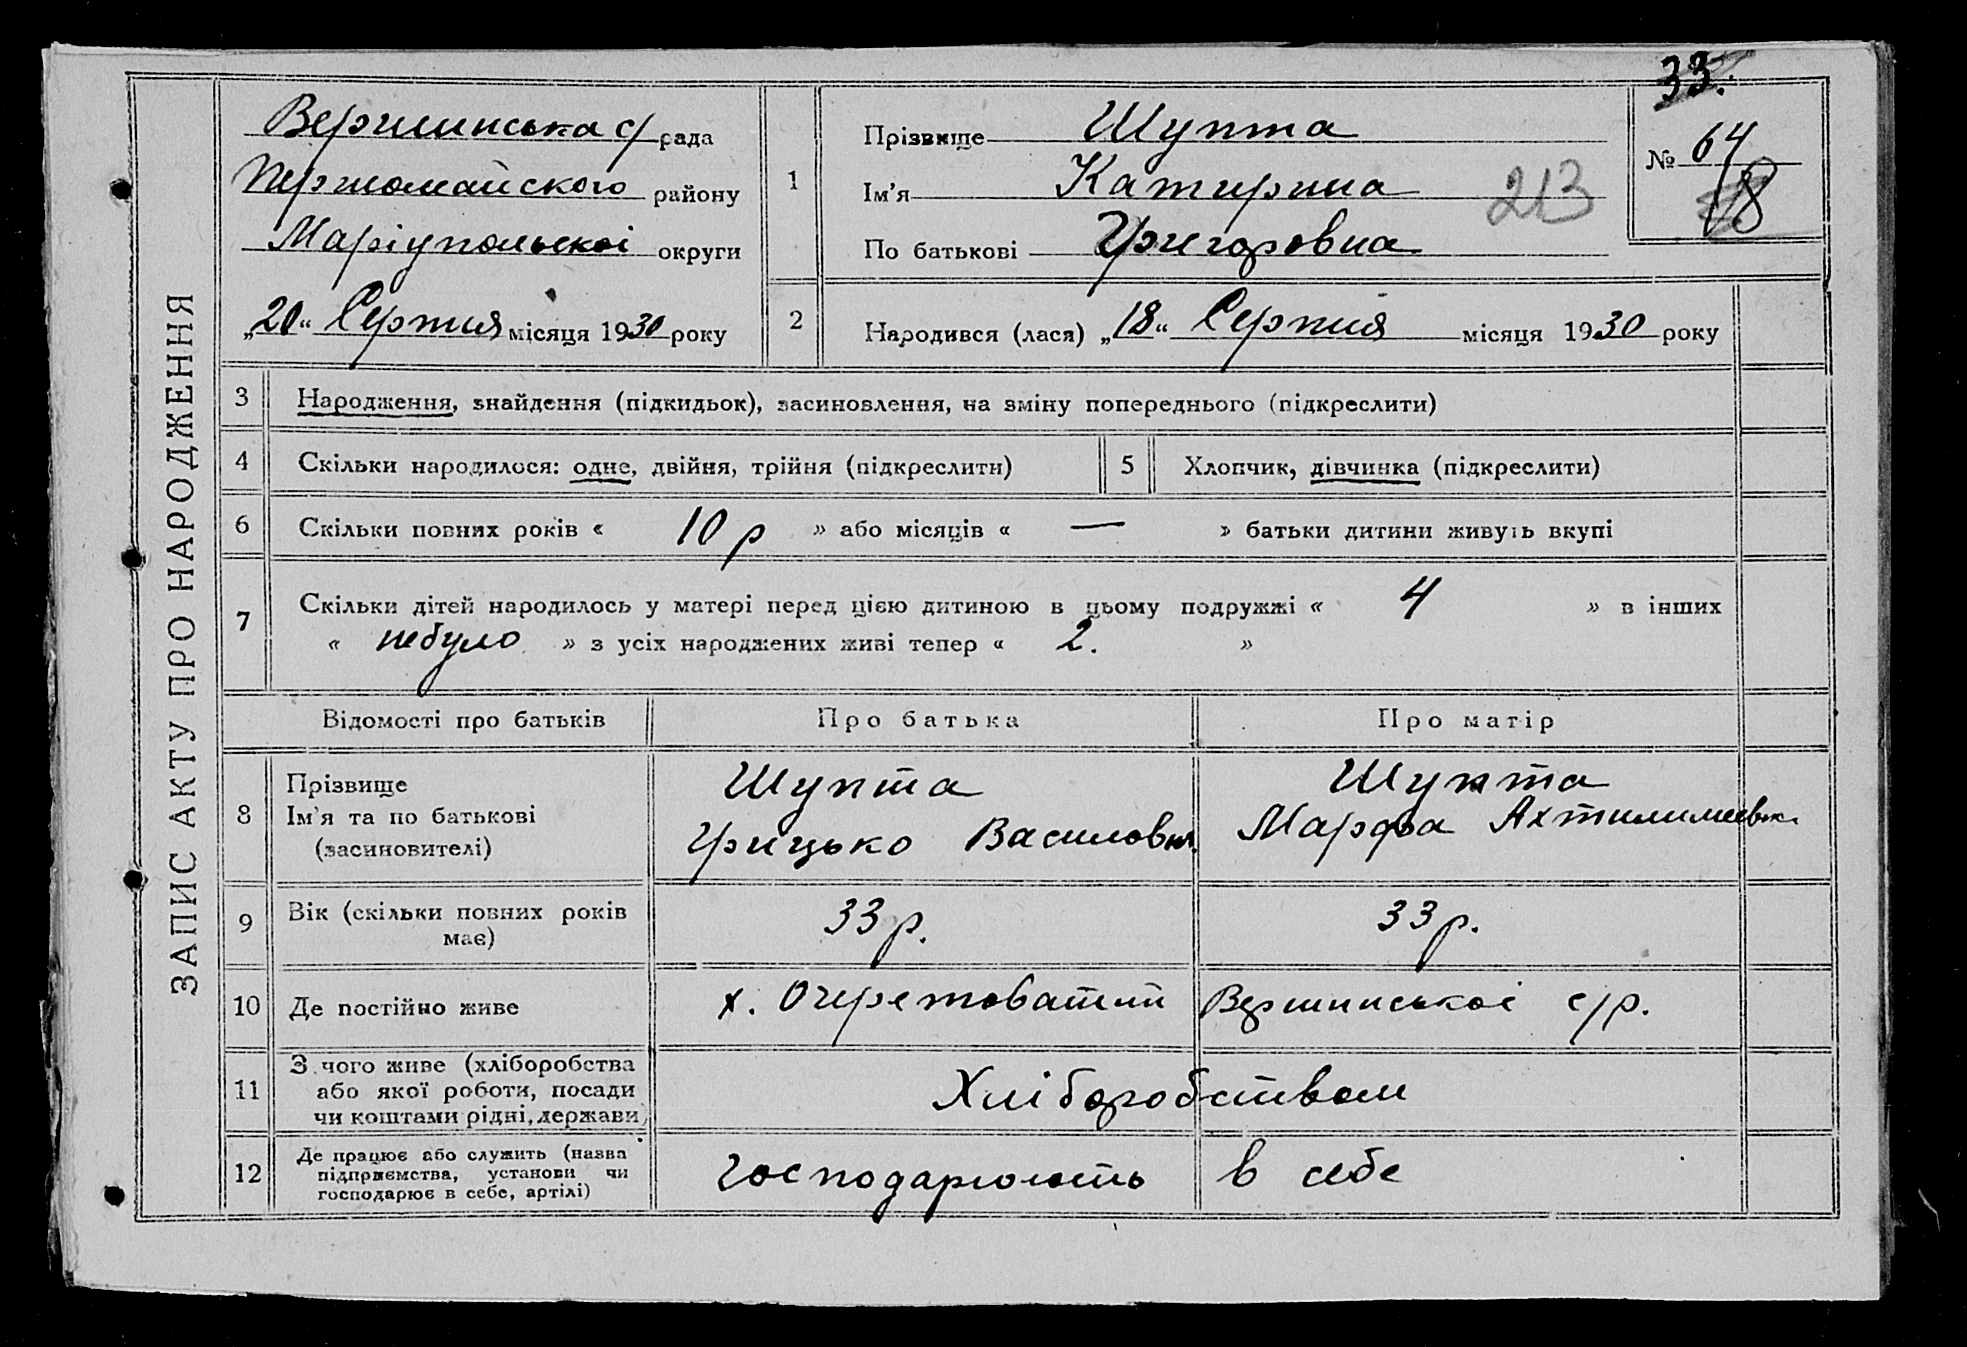 33.
ЗАПИС АКТУ ПРО НАРОДЖЕННЯ
Вершинська с/рада
Першомайского району
Маріупольскоі округи
„20“ Серпня місяця 1930 року
1
Прізвище Шупта
Ім'я Катирина
По батькові Григоровна
213
№ 64
18
2
Народився (лася) „18“ Серпня місяця 1930 року
3 Народження, знайдення (підкидьок), засиновлення, на зміну попереднього (підкреслити)
4 Скільки народилося: одне, двійня, трійня (підкреслити) 5 Хлопчик, дівчинка (підкреслити)
6 Скільки повних років « 10 р » або місяців « — » батьки дитини живуть вкупі
7 Скільки дітей народилось у матері перед цією дитиною в цьому подружжі « 4 » в інших
« небуло » з усіх народжених живі тепер « 2. »
Відомості про батьків Про батька Про матір
8
Прізвище
Ім'я та по батькові
(засиновителі)
Шупта
Грицько Василович
Шупта
Марфа
9 Вік (скільки повних років
має)
33 р. 33 р.
10 Де постійно живе х. Очеретоватий Вершинськоі с/р.
11 З чого живе (хліборобства
або якої роботи, посади
чи коштами рідні, держави)
Хліборобством
12 Де працює або служить (назва
підприємства, установи чи
господарює в себе, артілі)
господарюють в себе